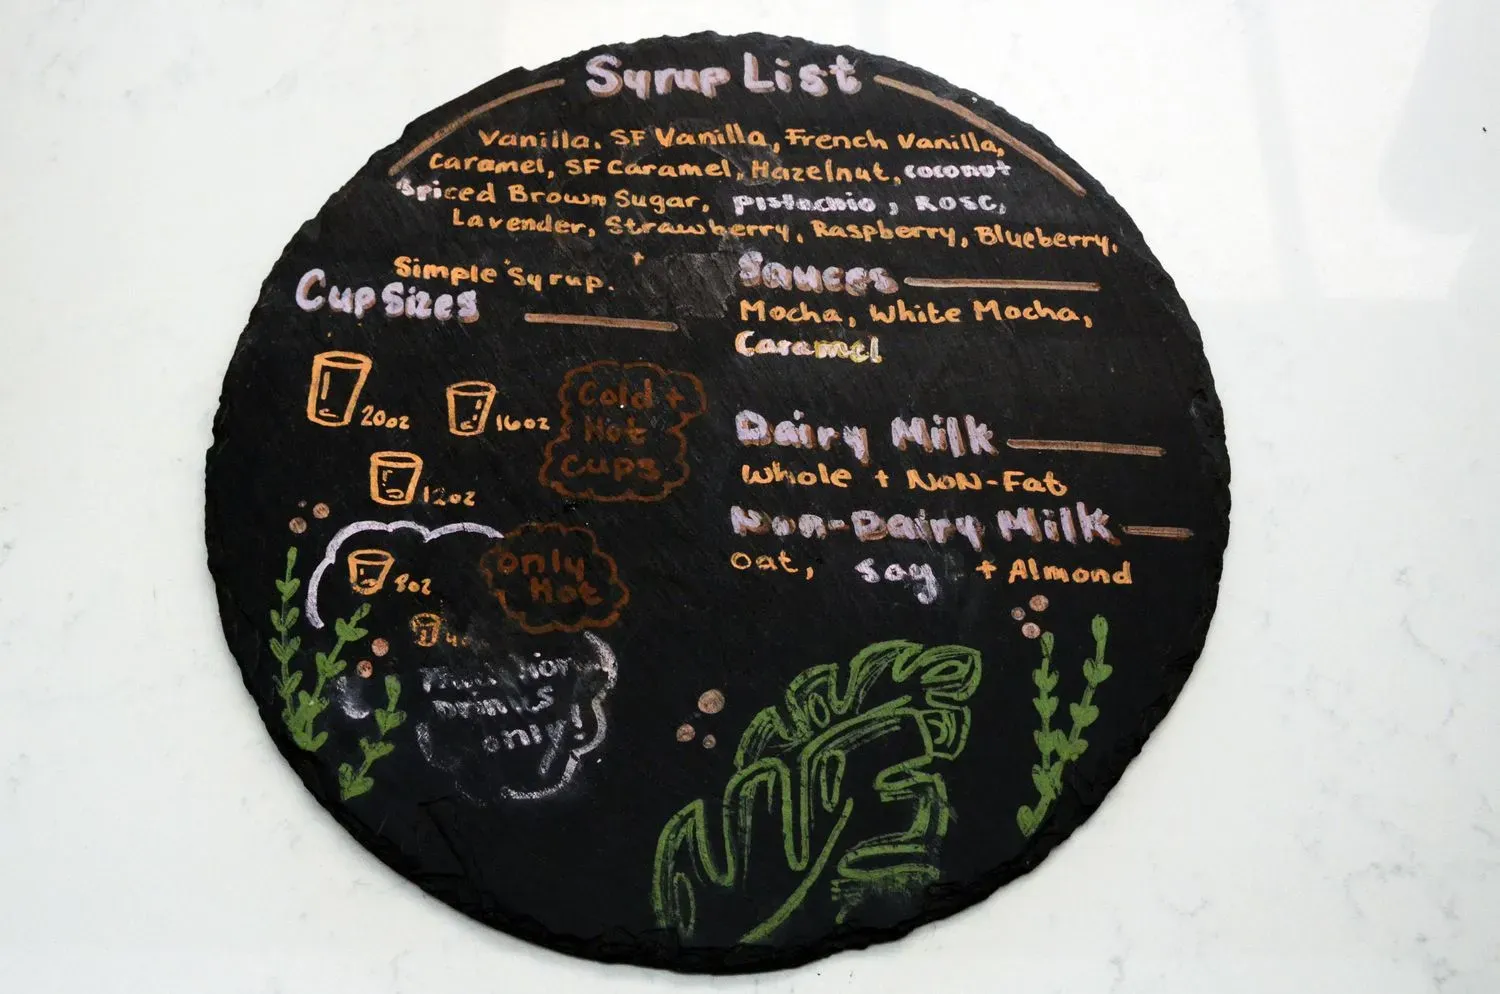 Syrup List
Vanilla, SF Vanilla, French Vanilla,
Caramel, SF Caramel, Hazelnut, coconut
Spiced Brown Sugar, pistachio, Rose,
Lavender, Strawberry, Raspberry, Blueberry,
+
Simple Syrup.
Cup Sizes
20oz
16oz
Cold +
Hot
Cups
12oz
8oz
only
Hot
Drinks
only!
Sauces
Mocha, White Mocha,
Caramel
Dairy Milk
Whole + NON-Fat
Non-Dairy Milk
oat, soy + Almond